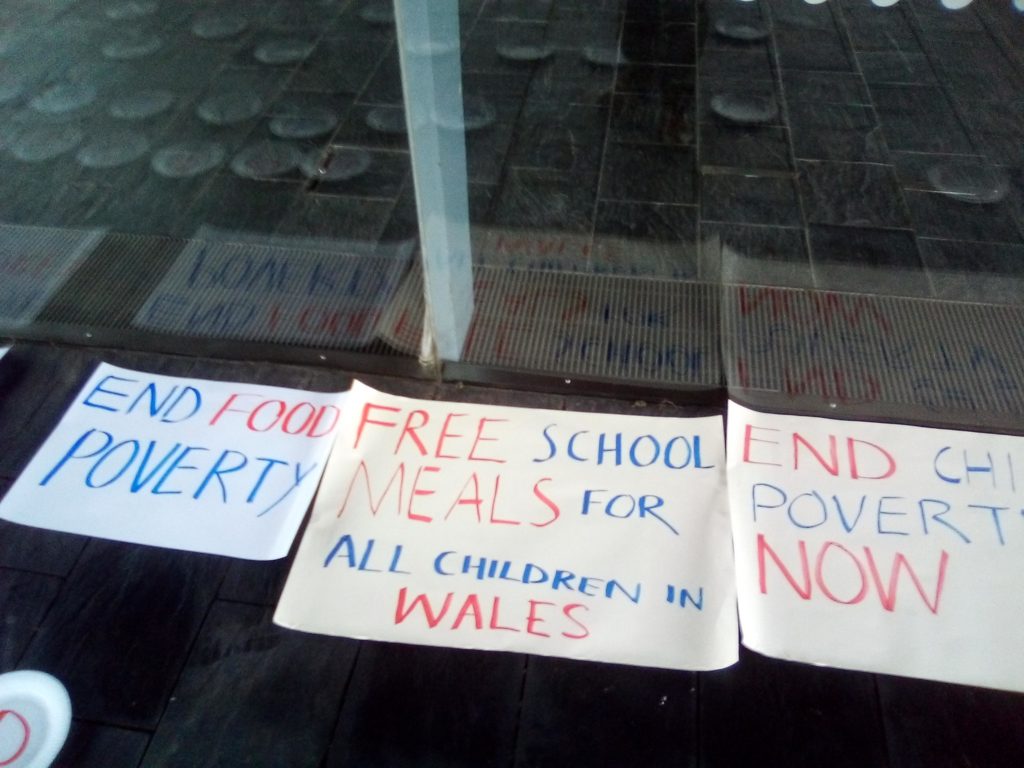 END FOOD
POVERTY
FREE SCHOOL
MEALS FOR
ALL CHILDREN IN
WALES
END CHI
POVERT
NOW